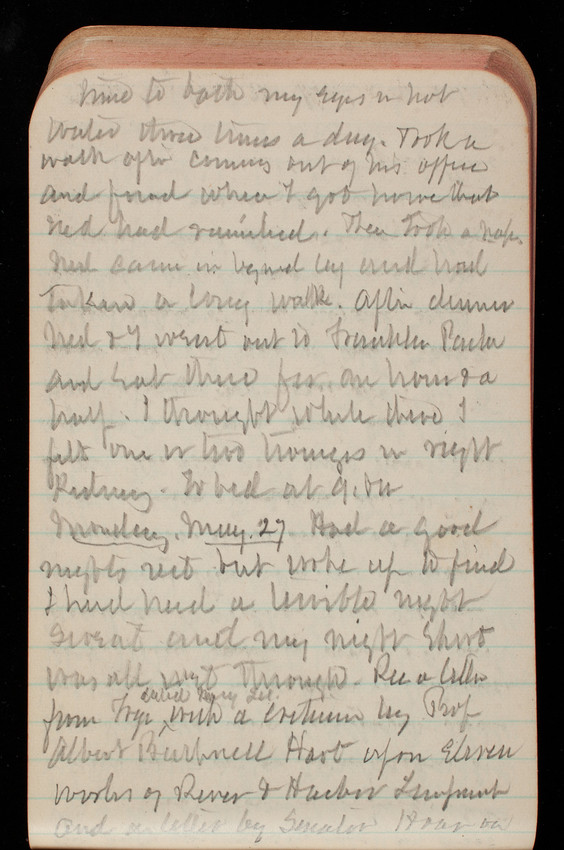 time to bath my eyes in hot
water three times a day. Took a
walk after coming out of his office
and found when I got home that
Ned had vanished. Then Took a nap.
Ned came in by and by and had
taken a long walk. After dinner
Ned & I went out to Franklin Park
and sat there for an hour & a
half. I thought while there I
felt one or two twinges in right
Kidney. To bed at 9.
Monday, May. 27 Had a good
nights rest but woke up to find
I had had a terrible night
Sweat and my night Shirt
was all wet through. Rec a letter
from
with a by Prof
Albert Bushnell Hart upon Eleven
works of River & Harbor
and a letter by Senator Hoar on